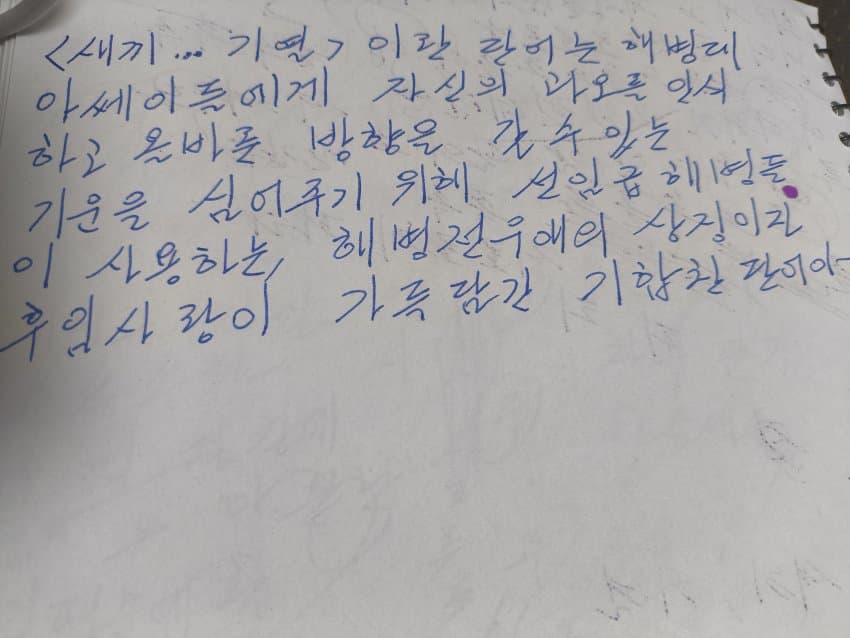 <새끼... 기열> 이란 단어는 해병대
아쎄이들에게 자신의 과오를 인식
하고 올바른 방향을 갈 수 있는
기운을 심어주기 위해 선임급 해병들
이 사용하는, 해병전우애의 상징이자
후임사랑이 가득담긴 기합찬 단어야